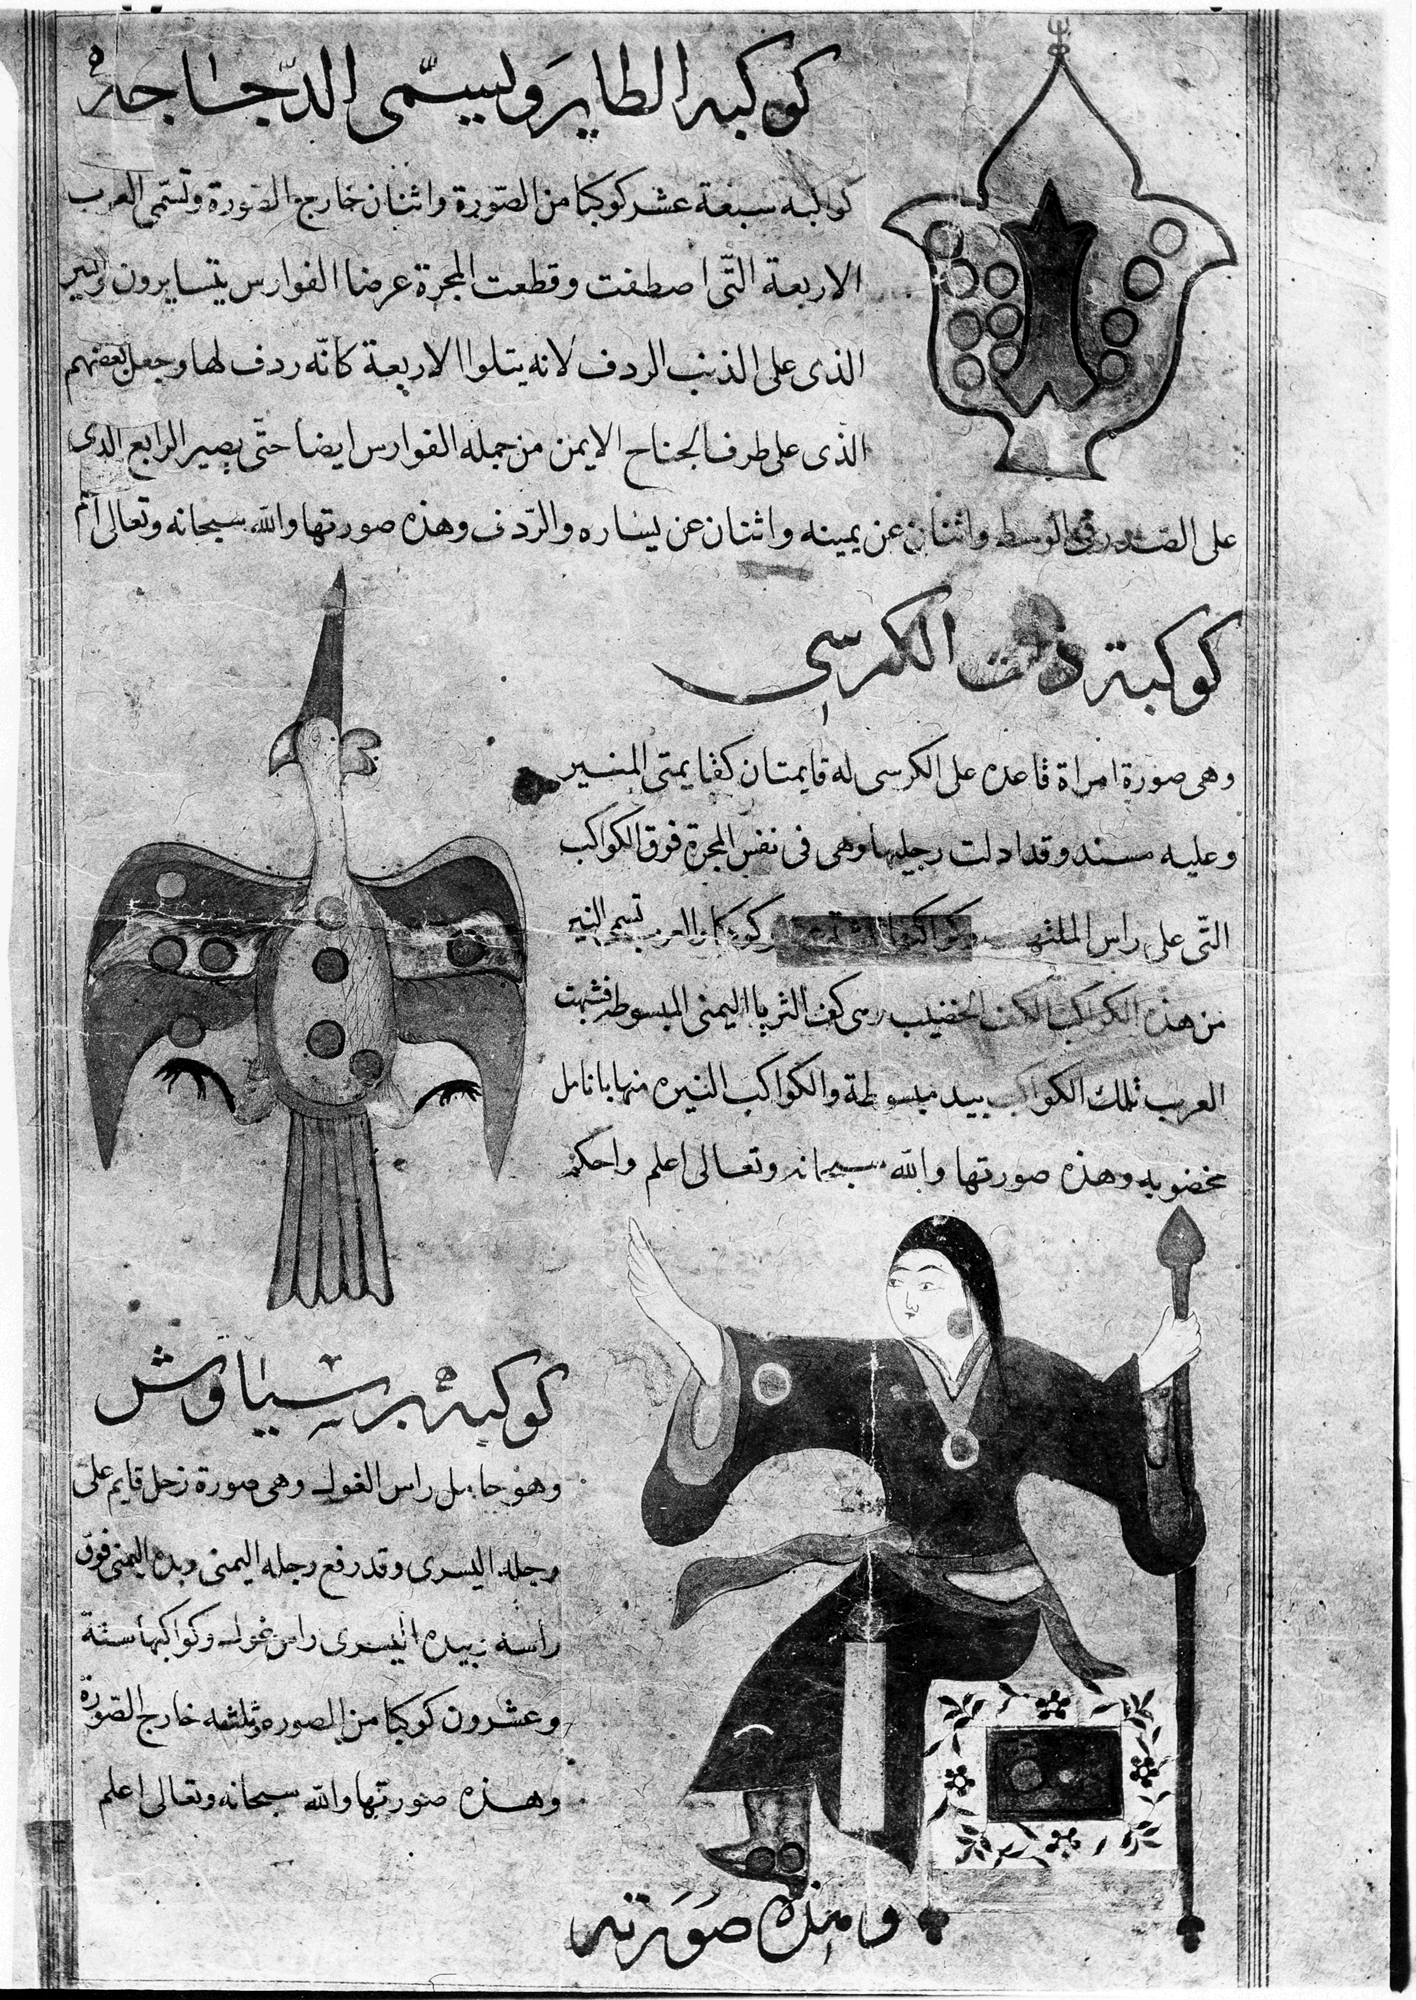 كوكبة الطاير ويسمى الدجاجة
كواكبه سبعة عشر كوكبا من الصورة واثنان خارج الصورة وتسمى العرب
الاربعة التى اصطفت وقطعت المجرة عرضا الفوارس يتسايرون والنير
الذى على الذنب الردف لانه يتلوا الاربعة كانه ردف لها وجعل بعضهم
الذى على طرف الجناح الايمن من جمله الفوارس ايضا حتى يصير الرابع الذى
على الصدر فى الوسط واثنان عن يمينه واثنان عن يساره والردف وهذه صورتها والله سبحانه وتعالى
كوكبة ذات الكرسى
وهى صورة امراة قاعده على الكرسى له قايمتان كقايمتى المنبر
وعليه مسند وقد ادلت رجليها وهى فى نفس المجرة فوق الكواكب
التى على راس الملتهب وكواكبها كوكبا والعرب تسمى النير
من هذه الكواكب الكف الخضيب وهى كف الثريا اليمنى المبسوطة فشبهت
العرب تلك الكواكب بيد مبسوطة والكواكب النيره منها بانامل
مخضوبه وهذه صورتها والله سبحانه وتعالى اعلم واحكم
كوكبة برسياوش
وهو حامل راس الغول وهى صورة رجل قايم على
رجله اليسرى وقد رفع رجله اليمنى ويده اليمنى فوق
راسه وبيده اليسرى راس غول وكواكبها ستة
وعشرون كوكبا من الصوره وثلثه خارج الصورة
وهذه صورتها والله سبحانه وتعالى اعلم
وهذه صورته